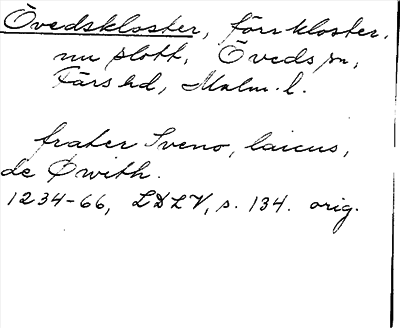 Övedskloster, förr kloster,
nu slott, Öveds sn,
Färs hd, Malm. l.
frater Sveno, laicus,
de Øwith.
1234-66, LDLV, s. 134. orig.